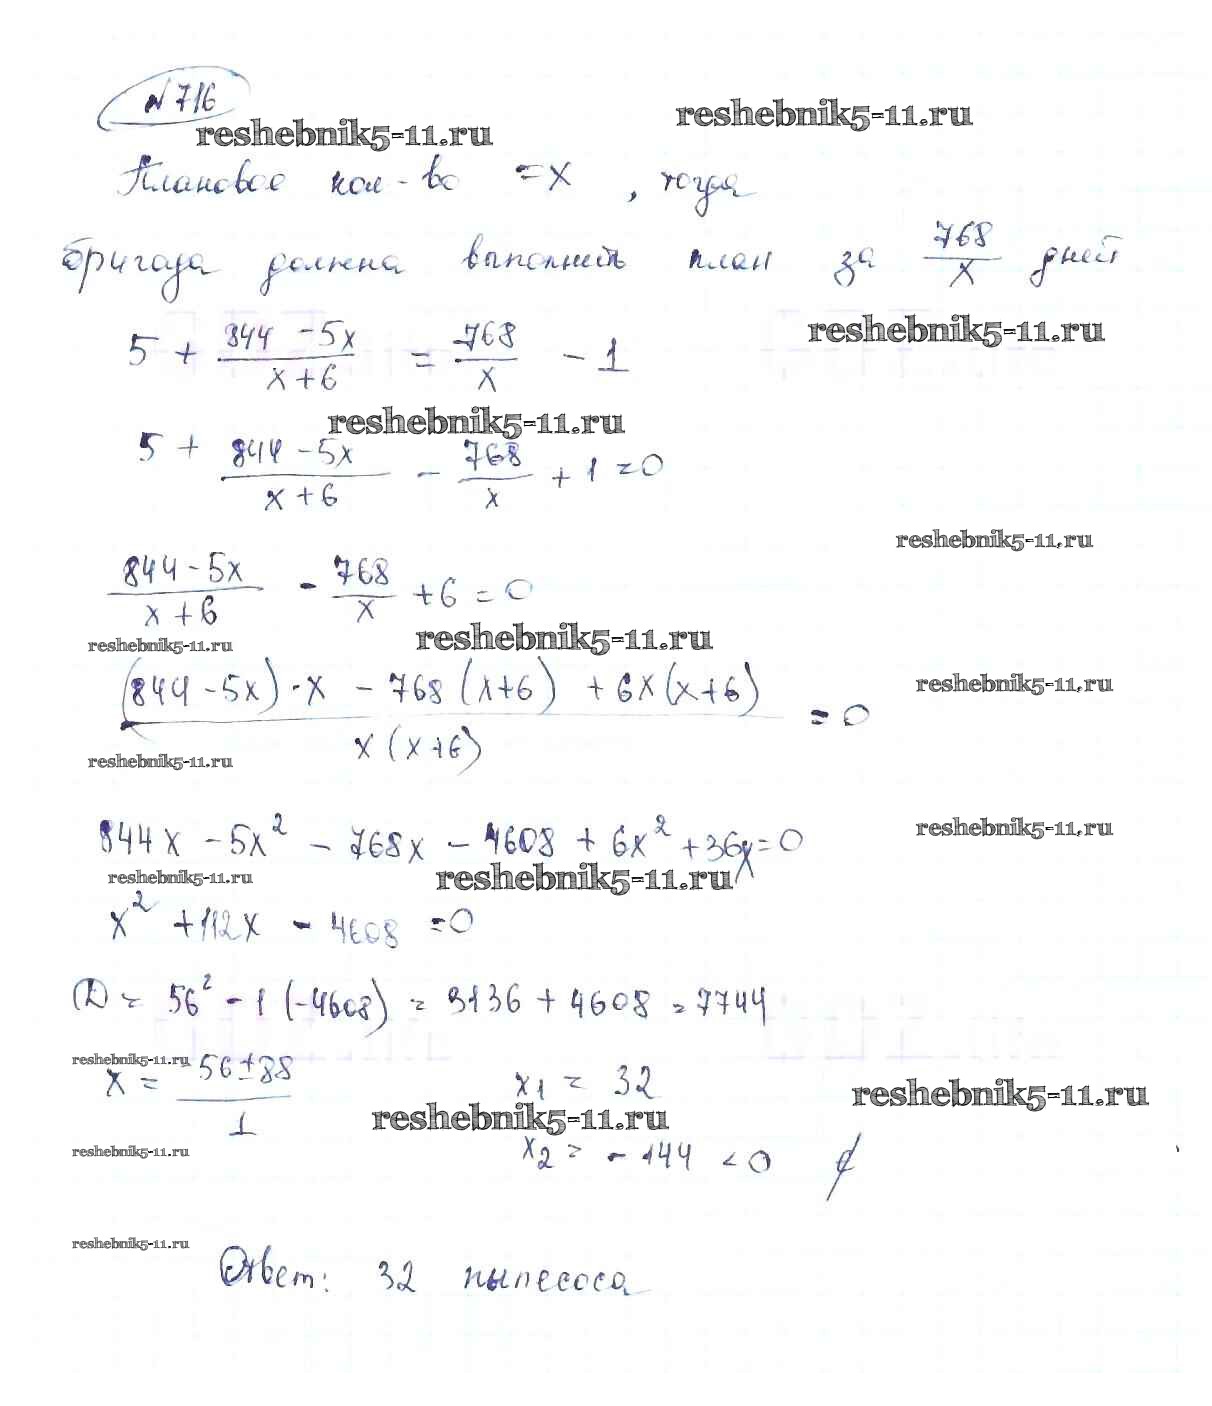 №716
reshebnik5-11.ru
reshebnik5-11.ru
Плановое кол-во = x, тогда
бригада должна выполнить план за 768/x дней
5 + (844 - 5x)/(x + 6) = 768/x - 1
reshebnik5-11.ru
reshebnik5-11.ru
5 + (844 - 5x)/(x + 6) - 768/x + 1 = 0
reshebnik5-11.ru
(844 - 5x)/(x + 6) - 768/x + 6 = 0
reshebnik5-11.ru
reshebnik5-11.ru
((844 - 5x)·x - 768(x+6) + 6x(x+6))/(x(x+6)) = 0
reshebnik5-11.ru
reshebnik5-11.ru
844x - 5x² - 768x - 4608 + 6x² + 36x = 0
reshebnik5-11.ru
reshebnik5-11.ru
reshebnik5-11.ru
x² + 112x - 4608 = 0
D = 56² - 1(-4608) = 3136 + 4608 = 7744
reshebnik5-11.ru
x = (-56 ± 88)/1 x₁ = 32
reshebnik5-11.ru
reshebnik5-11.ru
reshebnik5-11.ru
x₂ = -144 < 0 ∉
reshebnik5-11.ru
Ответ: 32 пылесоса